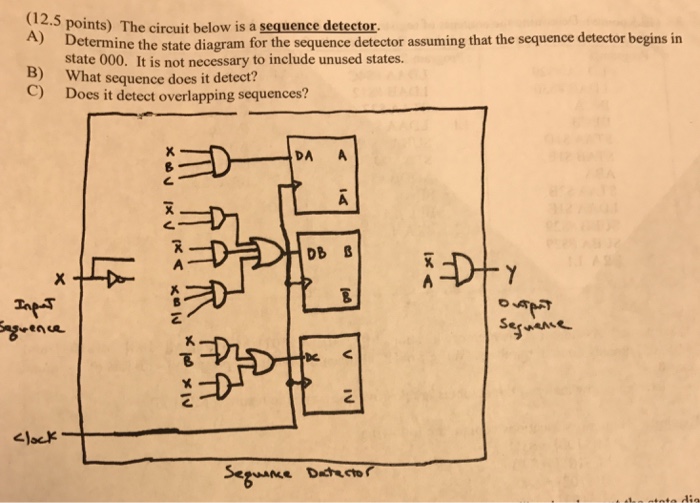 (12.5 points) The circuit below is a sequence detector.
A) Determine the state diagram for the sequence detector assuming that the sequence detector begins in
state 000. It is not necessary to include unused states.
B) What sequence does it detect?
C) Does it detect overlapping sequences?
X
B
C
DA A
A̅
X̅
C
X̅
A
X
B
C̅
DB B
B̅
X
B̅
X
C̅
DC C
C̅
X
Input
Sequence
X̅
A
Y
Output
Sequence
Clock
Sequence Detector